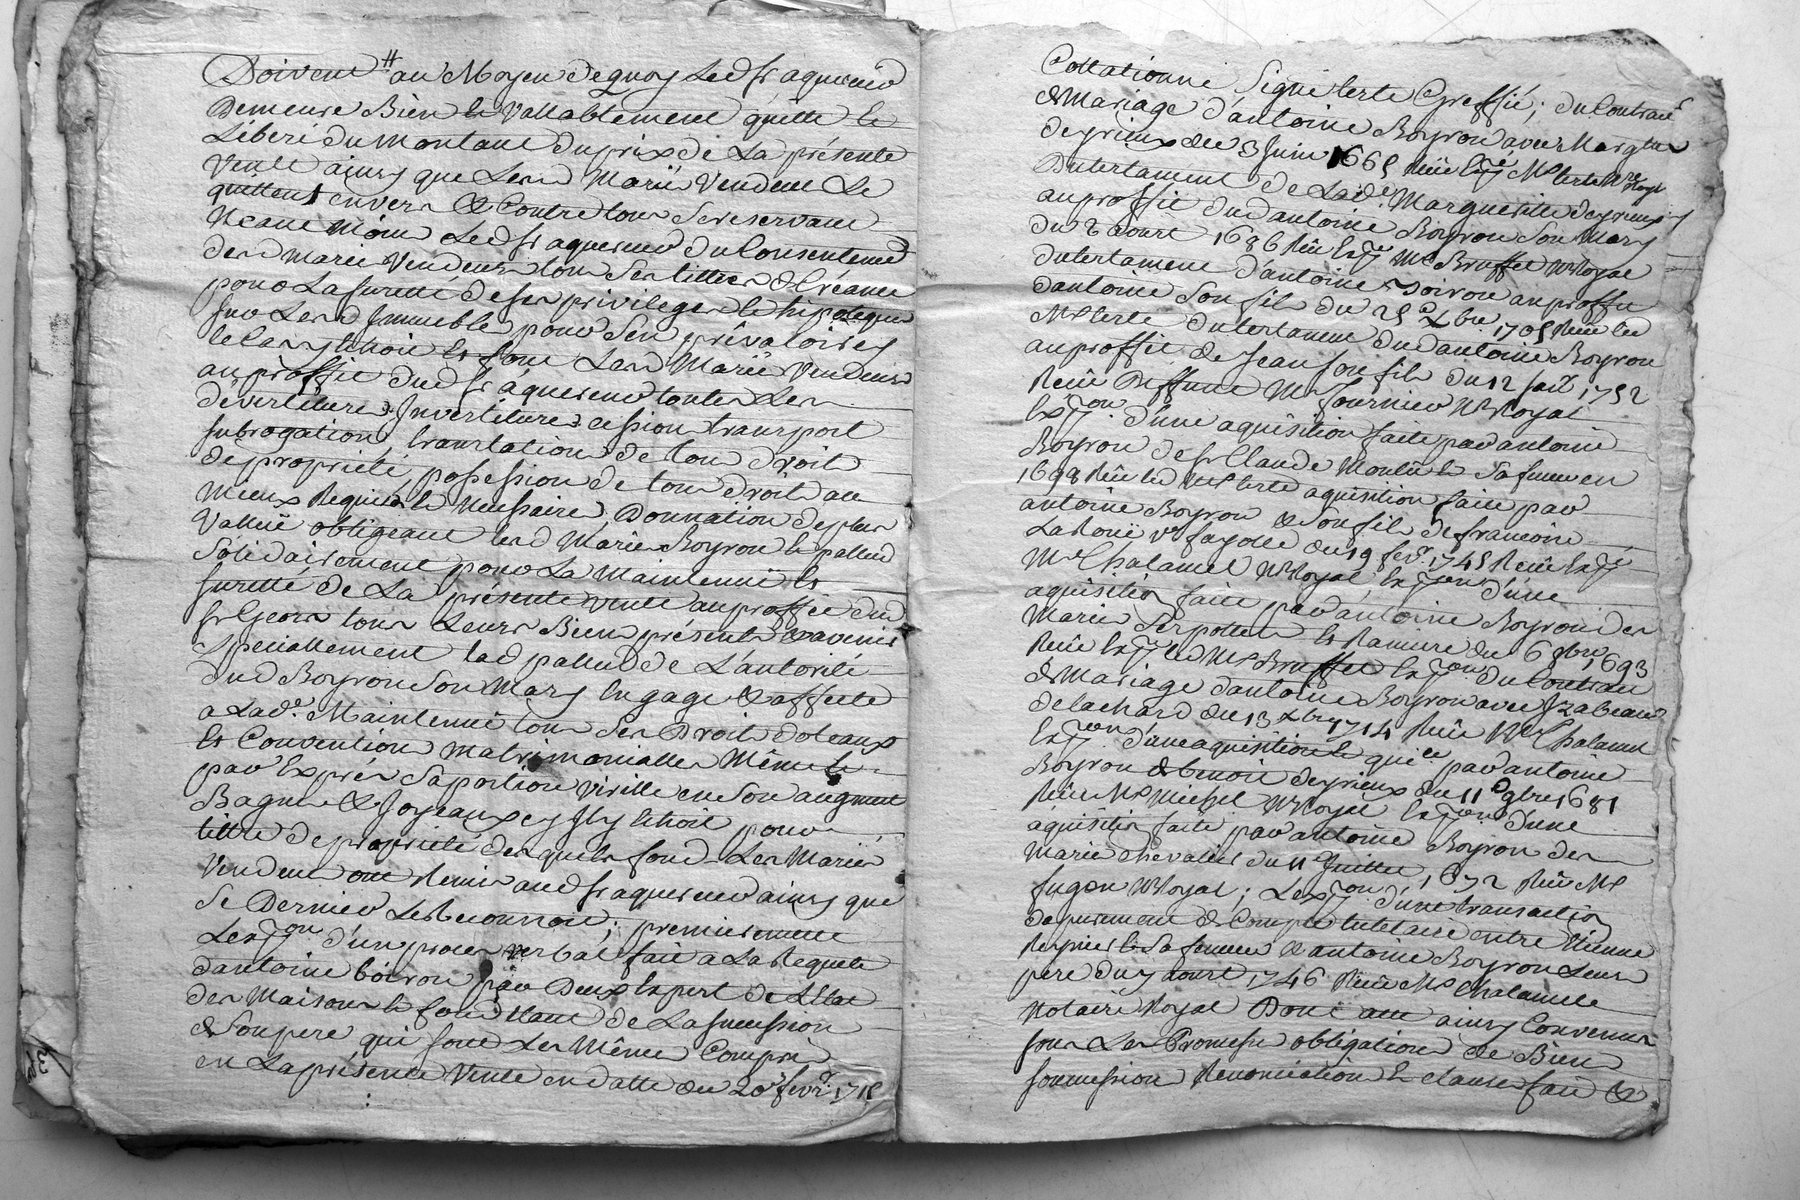 Doivent # au Moyen de quoy Led sr aquereur
Demeure Bien & Vallablement quitte &
Libéré du Montant du prix de La présente
Vente ainsy que Lesd Mariés Vendeurs Le
quittent envers & Contre tous Se reservant
Neant Moins Led sr aquereur du Consentement
desd Mariés Vendeurs tous Ses tittres de Créance
pour La Sureté de ses privileges & hipoteques
sur Lesd Immeuble pour S'en prévaloir sy
Le Cas y Echoit Et font Lesd Mariés Vendeurs
au proffit dud sr aquereur toutes Les
dévestitures Investitures cession transport
subrogation translation de tous droit
de propriété possession de tous droits au
mieux Requis & Necessaire Donnation de plus
Vallue obligeant lesd Mariés Boyron & pallud
Solidairement pour La Maintenüe Et
sureté de La présente vente au proffit dud
sr Geors tous Leurs Biens présents & avenir
Speciallement lad pallud de L'autorité
dud Boyron Son Mary Engage & affecte
a Lade Maintenüe tous Ses Droits dotaux
Et Convention matrimonialles Même &
par Exprés Sa portion Virille en Son augment
Bagues & Joyeaux sy Ily Echoit pour
tittre de propriété desquels fonds Les Mariés
Vendeurs ont Remis aud sr aquereur ainsy que
Ce Dernier Le Reconnoit; premierement
L'exon d'un procès verbal fait a La Requete
d'antoine boiron par Deux Expert de L'Etat
des Maisons & fonds Etant de La succession
de Son pere qui sont Les Même Compris
en La présente Vente en datte du 20e fevr.
Collationné Signé terte Greffié; du Contrat
de Mariage d'antoine Boyron avec Margte
deyrieux du 3 Juin 1665 Reçu Exp Me terte Nre Royl
Du testament de Lade Marguerite deyrieux
au proffit dud antoine Boyron Son Mary
du 2 aoust 1686 Reçu Me Bruffet Nre Royal
du testament d'antoine Boiron au proffit
d'antoine Son fils du 25e Xbre 1705 Reçu led
Me terte du testament dud antoine Boyron
au proffit de Jean Son fils du 12 1752
Reçu Deffunt Me fournier Nre Royal
Exon d'une aquisition faite par antoine
Boyron de sr Claude Montel & Sa femme en
1698 Reçu led Me terte aquisition faite par
antoine Boyron & Son fils de francoise
La Roüe ve fayolle du 19 fevr. 1745 Reçu
Me Chalamel Nre Royal Exon d'une
aquisition faite par antoine Boyron des
Mariés Serpollet & Ramiere du 6 9bre 1693
Reçu led Me Bruffet Exon du Contrat
de Mariage d'antoine Boyron avec Izabeau
delachard du 13 Xbre 1714 Reçu Me Chalamel
Exon d'une aquisition par antoine
Boyron de benoit deyrieux du 11e 9bre 1681
Reçu Me Michel Nre Royal Exon d'une
aquisition faite par antoine Boyron des
Mariés Chevallier du 11e Juillet 1672 Reçu Me
fugon Nre Royal; L'exon d'une transaction
de Compte tutelaire entre Etienne
Reynier & Sa femme & antoine Boyron Leur
pere du 7 aoust 1746 Reçu Me Chalamelle
Notaire Royal Dont ont ainsy Convenus
sous Les Promesse obligations de Biens
soumission Renonciation & clauses fait &